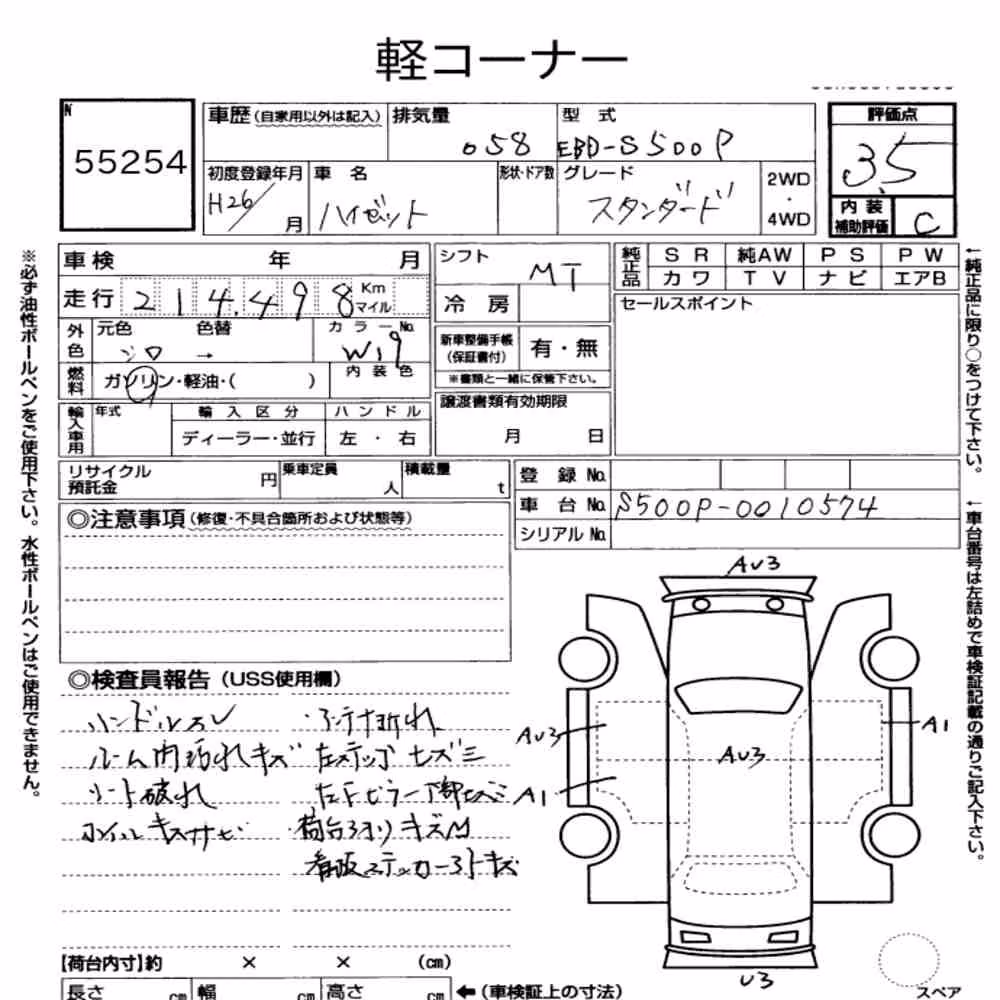 軽コーナー
N
55254
車歴 (自家用以外は記入) 排気量 型式 評価点
058 EBD-S500P 3.5
初度登録年月 車名 形状・ドア数 グレード 2WD ・ 4WD
H26/ 月 ハイゼット スタンダード
内装補助評価 C
車検 年 月
シフト MT
純正品 SR 純AW PS PW
カワ TV ナビ エアB
走行 214,498 Km マイル
冷房
セールスポイント
外色 元色 色替 カラーNo.
シロ → W19
新車整備手帳 (保証書付) 有・無
※書類と一緒に保管下さい。
燃料 ガソリン・軽油・( ) 内装色
譲渡書類有効期限
月 日
輸入車用 年式 輸入区分 ハンドル
ディーラー・並行 左・右
リサイクル預託金 円 乗車定員 人 積載量 t
登録No.
車台No. S500P-0010574
シリアルNo.
◎注意事項 (修復・不具合箇所および状態等)
◎検査員報告 (USS使用欄)
ハンドルスレ
ルーム内汚れキズ
シート破れ
ホイルキズサビ
・アンテナ折れ
左ステップ
荷台
看板ステッカー
AU3
AU3
A1
AU3
A1
U3
【荷台内寸】約 × × (cm)
長さ cm 幅 cm 高さ cm ←(車検証上の寸法)
スペア
※必ず油性ボールペンをご使用下さい。水性ボールペンはご使用できません。
←純正品に限り○をつけて下さい。
←車台番号は左詰めで車検証記載の通りご記入下さい。